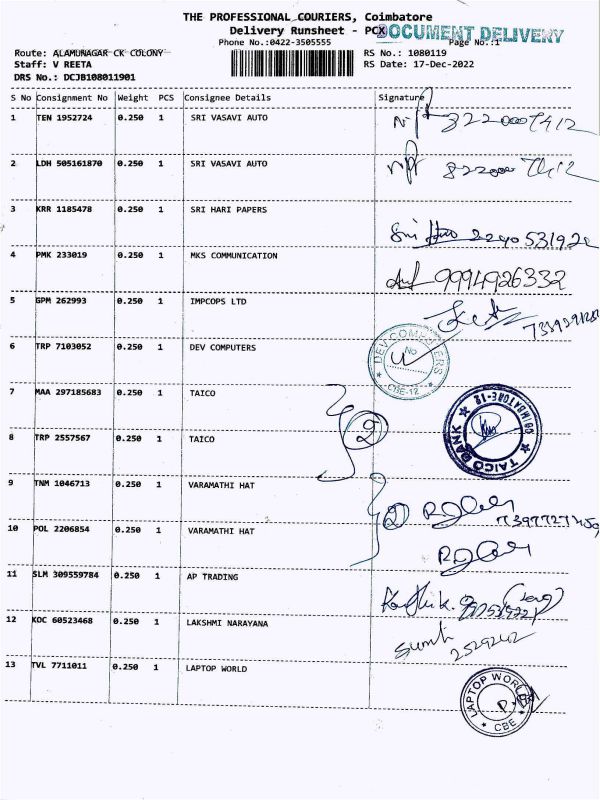 THE PROFESSIONAL COURIERS, Coimbatore
Delivery Runsheet - PCX DOCUMENT DELIVERY
Phone No.:0422-3505555 Page No.:1
Route: ALAMUNAGAR CK COLONY RS No.: 1080119
Staff: V REETA RS Date: 17-Dec-2022
DRS No.: DCJB108011901
S No Consignment No Weight PCS Consignee Details Signature
1 TEN 1952724 0.250 1 SRI VASAVI AUTO
2 LDH 505161870 0.250 1 SRI VASAVI AUTO
3 KRR 1185478 0.250 1 SRI HARI PAPERS
4 PMK 233019 0.250 1 MKS COMMUNICATION 9994926332
5 GPM 262993 0.250 1 IMPCOPS LTD
6 TRP 7103052 0.250 1 DEV COMPUTERS DEV COMPUTERS CBE-12
7 MAA 297185683 0.250 1 TAICO
8 TRP 2557567 0.250 1 TAICO 2 TAICO BANK COIMBATORE-18
9 TNM 1046713 0.250 1 VARAMATHI HAT
10 POL 2206854 0.250 1 VARAMATHI HAT 2
11 SLM 309559784 0.250 1 AP TRADING Karthik.
12 KOC 60523468 0.250 1 LAKSHMI NARAYANA 2529242
13 TVL 7711011 0.250 1 LAPTOP WORLD LAPTOP WORLD CBE